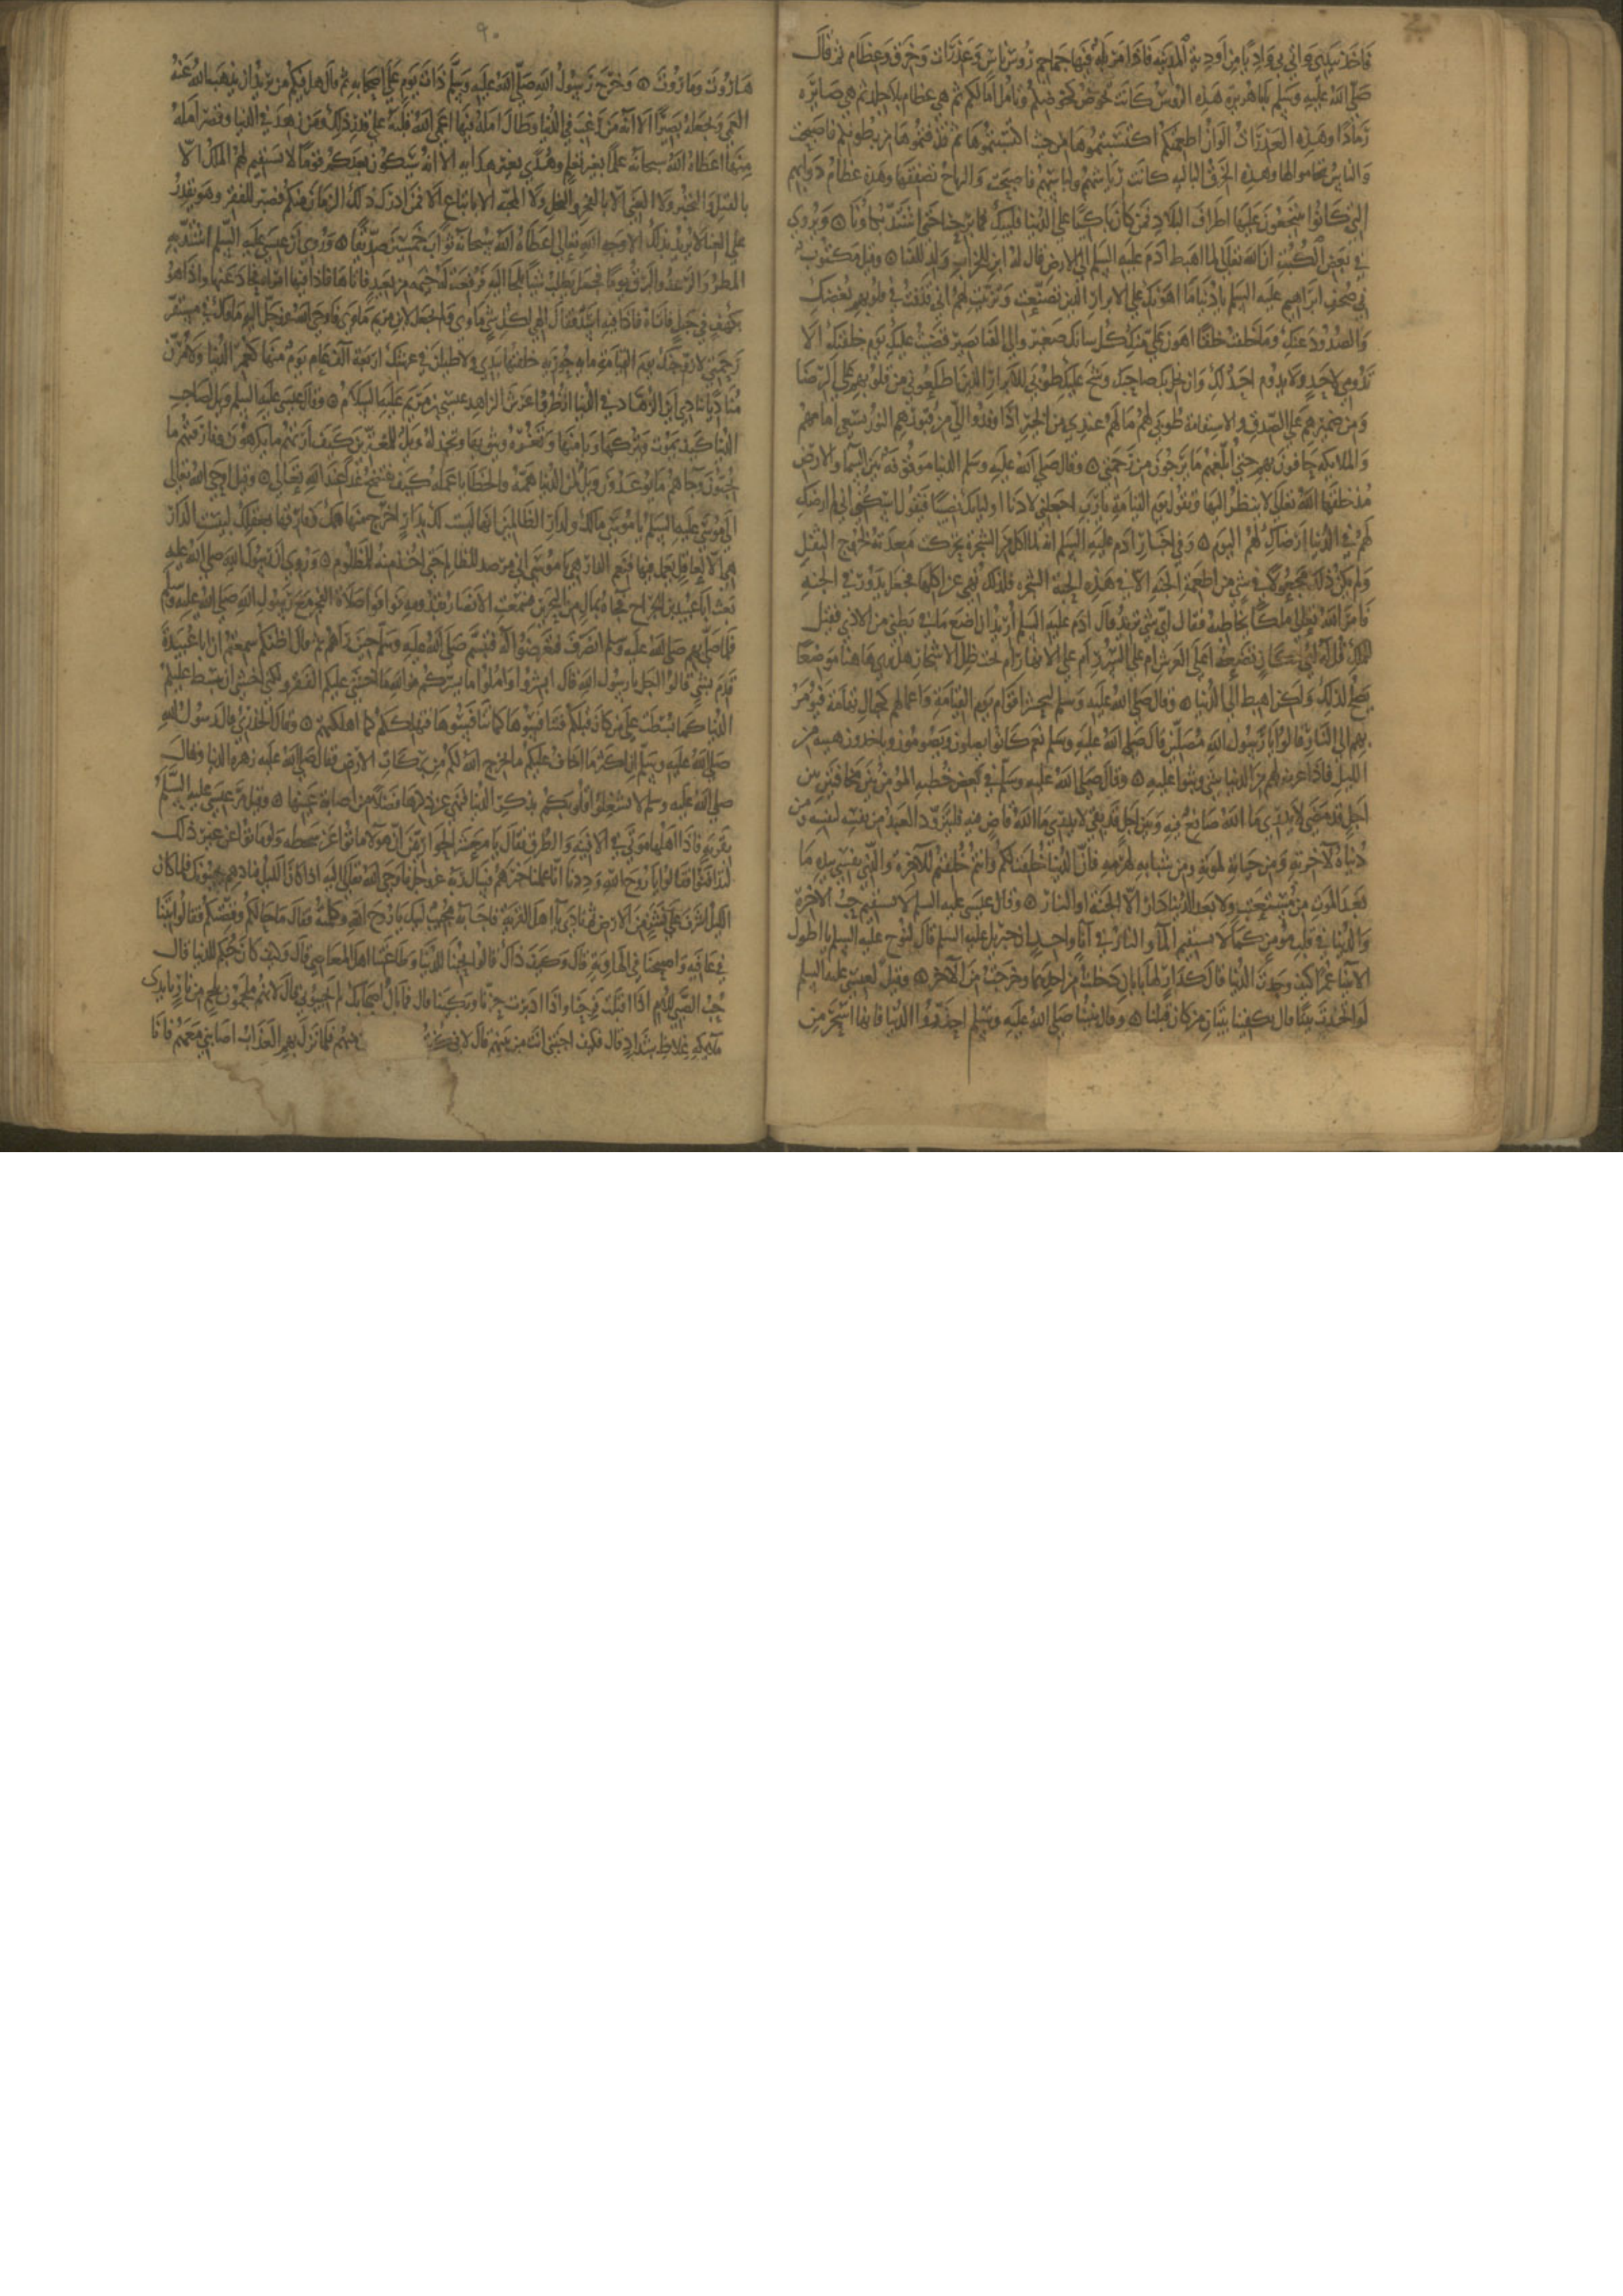 فاخذ بيدي واتى بي واديا من اودية المدينة فاذا مزبلة فيها جماجم رؤس ناس وعذرات وخرق وعظام ثم قال
صلى الله عليه وسلم يا با هريرة هذه الرؤس كانت تحرص كحرصكم وتامل امالكم ثم هي عظام بلا جلد ثم هي صايرة
رمادا وهذه العذرات الوان اطعمتكم اكتسبتموها من حيث اكتسبتموها ثم قذفتموها من بطونكم فاصبحت
والناس يتحامونها وهذه الخرق الباليه كانت رياشهم ولباسهم فاصبحت والرياح تصفقها وهذه عظام دوابهم
التي كانوا ينتجعون عليها اطراف البلاد فمن كان باكيا على الدنيا فليبك فما برحنا حتى اشتد بكاونا وبروى
في بعض الكتب ان الله تعالى لما اهبط ادم عليه السلم الى الارض قال له ابن للخراب ولد للفنا وقيل مكتوب
في صحف ابراهيم عليه السلم يا دنيا ما اهونك على الابرار الذين تصنعت وتزينت لهم اني قذفت في قلوبهم بغضك
والصدود عنك وما خلقت خلقا اهون علي منك كل شانك صغير والى الفنا يصير قضيت عليك يوم خلقتك الا
تدومي لاحد ولا يدوم احد لك وان بخل بك صاحبك وشح عليك طوبى للابرار الذين اطلعوني من قلوبهم على الرضا
ومن ضميرهم على الصدق والاستقامة طوبى لهم ما لهم عندي من الجزا اذا وفدوا الي من قبورهم النور يسعى امامهم
والملايكه حافون بهم حتى ابلغهم ما يرجون من رحمتي وقال صلى الله عليه وسلم الدنيا موقوفة بين السما والارض
منذ خلقها الله تعالى لا ينظر اليها وتقول يوم القيامة يا رب اجعلني لادنا اوليايك نصيبا فيقول اسكتي اني لم ارضك
لهم في الدنيا ارضاك لهم اليوم وفي اخبار ادم عليه السلم انه لما اكل من الشجرة تحركت معدته لخروج الثفل
ولم يكن ذلك مجعولا في شي من اطعمة الجنه الا في هذه الشجره فلذلك نهي عن اكلها فجعل يدور في الجنه
فامر الله تعالى ملكا يخاطبه فقال اي شي تريد قال ادم عليه السلم اريد ان اضع ما في بطني من الاذى فقيل
للملك قل له في اي مكان تضعه اعلى العرش ام على السرر ام على الانهار ام تحت ظل الاشجار هل ترى هاهنا موضعا
يصلح لذلك ولكن اهبط الى الدنيا وقال صلى الله عليه وسلم ليجيئن اقوام يوم القيامة واعمالهم كجبال تهامة فيومر
بهم الى النار قالوا يا رسول الله مصلين قال صلى الله عليه وسلم نعم كانوا يصلون ويصومون وياخذون هنة من
الليل فاذا عرض لهم من الدنيا شي وثبوا عليه وقال صلى الله عليه وسلم في بعض خطبه المؤمن بين مخافتين بين
اجل قد مضى لا يدري ما الله صانع فيه وبين اجل قد بقي لا يدري ما الله قاض فيه فليتزود العبد من نفسه لنفسه ومن
دنياه لاخرته ومن حياته لموته ومن شبابه لهرمه فان الدنيا خلقت لكم وانتم خلقتم للاخرة والذي نفسي بيده ما
بعد الموت من مستعتب ولا بعد الدنيا دار الا الجنة او النار وقال عيسى عليه السلم لا يستقيم حب الاخرة
والدنيا في قلب مومن كما لا يستقيم الما والنار في انا واحد وان جبريل عليه السلم قال لنوح عليه السلم يا اطول
الانبيا عمرا كيف وجدت الدنيا قال كدار لها بابان دخلت من احدهما وخرجت من الاخر وقيل لعيسى عليه السلم
لو اتخذت بيتا قال يكفينا بنيان من كان قبلنا وقال نبينا صلى الله عليه وسلم احذروا الدنيا فانها اسحر من
٩٠
هاروت وماروت وخرج رسول الله صلى الله عليه وسلم ذات يوم على اصحابه ثم قال هل فيكم من يريد ان يذهب الله عنه
العمى ويجعله بصيرا الا انه من رغب في الدنيا وطال امله فيها اعمى الله قلبه على قدر ذلك ومن زهد في الدنيا وقصر امله
فيها اعطاه الله سبحانه علما بغير تعلم وهدى بغير هدايه الا انه سيكون بعدكم قوم لا يستقيم لهم الملك الا
بالقتل والتجبر ولا الغنى الا بالفخر والبخل ولا المحبة الا باتباع الا فمن ادرك ذلك الزمان منكم فصبر للفقر وهو يقدر
على الغنا لا يريد بذلك الا وجه الله تعالى اعطاه الله سبحانه ثواب خمسين صديقا وروى ان عيسى عليه السلم اشتد به
المطر والرعد والبرق يوما فجعل يطلب شيا يلجا اليه فرفعت له خيمة من بعيد فاتاها فاذا فيها امراة فحاد عنها واذا هو
بكهف في جبل فاتاه فاذا فيه اسد فقال الهي لكل شي ماوى ولم تجعل لابن مريم ماوى فاوحى الله عز وجل اليه ماواك في مستقر
رحمتي لازوجنك يوم القيامة ماية حورية خلقتها بيدي ولاطعمن في عرسك اربعة الف عام يوم منها كعمر الدنيا ولامرن
مناديا ينادي اين الزهاد في الدنيا انظروا عرش الزاهد عيسى بن مريم عليه السلام وقال عيسى عليه السلم ويل لصاحب
الدنيا كيف يموت ويتركها ويامنها وتغره ويثق بها وتخذله ويل للمغترين كيف ارتهم ما يكرهون وفارقهم ما
يحبون وجاهم ما يوعدون ويل لمن الدنيا همه والخطايا عمله كيف يفتضح غدا عند الله تعالى وقيل اوحى الله تعالى
الى موسى عليه السلم يا موسى مالك ولدار الظالمين انها ليست لك بدار اخرج منها همك وفارقها بعقلك لبئست الدار
هي الا لعامل يعمل فيها فنعم الدار هي يا موسى اني مرصد للظالم حتى اخذ منه للمظلوم وروي ان رسول الله صلى الله عليه
بعث ابا عبيدة بن الجراح فجاه بمال من البحرين فسمعت الانصار بقدومه فوافوا صلاة الفجر مع رسول الله صلى الله عليه وسلم
فلما صلى بهم صلى الله عليه وسلم انصرف فتعرضوا له فتبسم صلى الله عليه وسلم حين راهم ثم قال اظنكم سمعتم ان ابا عبيدة
قدم بشي قالوا اجل يا رسول الله قال ابشروا واملوا ما يسركم فوالله ما اخشى عليكم الفقر ولكني اخشى ان تبسط عليكم
الدنيا كما بسطت على من كان قبلكم فتنافسوها كما تنافسوها فتهلككم كما اهلكتهم وقال الخدري قال رسول الله
صلى الله عليه وسلم ان اكثر ما اخاف عليكم ما يخرج الله لكم من بركات الارض فقال صلى الله عليه زهرة الدنيا وقال
صلى الله عليه وسلم لا تشغلوا قلوبكم بذكر الدنيا فنهى عن ذكرها فضلا من اصابة عينها وقيل مر عيسى عليه السلم
بقرية فاذا اهلها موتى في الافنيه والطرق فقال يا معشر الحواريين ان هولا ماتوا عن سخطه ولو ماتوا عن غير ذلك
لتدافنوا فقالوا يا روح الله وددنا انا علمنا خبرهم فسال ربه عز وجل فاوحى الله تعالى اليه اذا كان الليل فنادهم يجيبوك فلما كان
الليل اشرف على نشز من الارض ثم نادى يا اهل القرية فاجابه مجيب لبيك يا روح الله وكلمته فقال ما حالكم وقصتكم فقالوا بتنا
في عافيه واصبحنا في الهاوية قال وكيف ذاك قالوا لحبنا للدنيا وطاعتنا اهل المعاصي قال وكيف كان حبكم للدنيا قال
حب الصبي لامه اذا اقبلت فرحنا واذا ادبرت حزنا وبكينا قال فما بال اصحابك لم يجيبوني قال لانهم ملجمون بلجم من نار بايدي
ملايكه غلاظ شداد قال فكيف اجبتني انت من بينهم قال لاني كنت منهم فلما نزل بهم العذاب اصابني معهم فانا